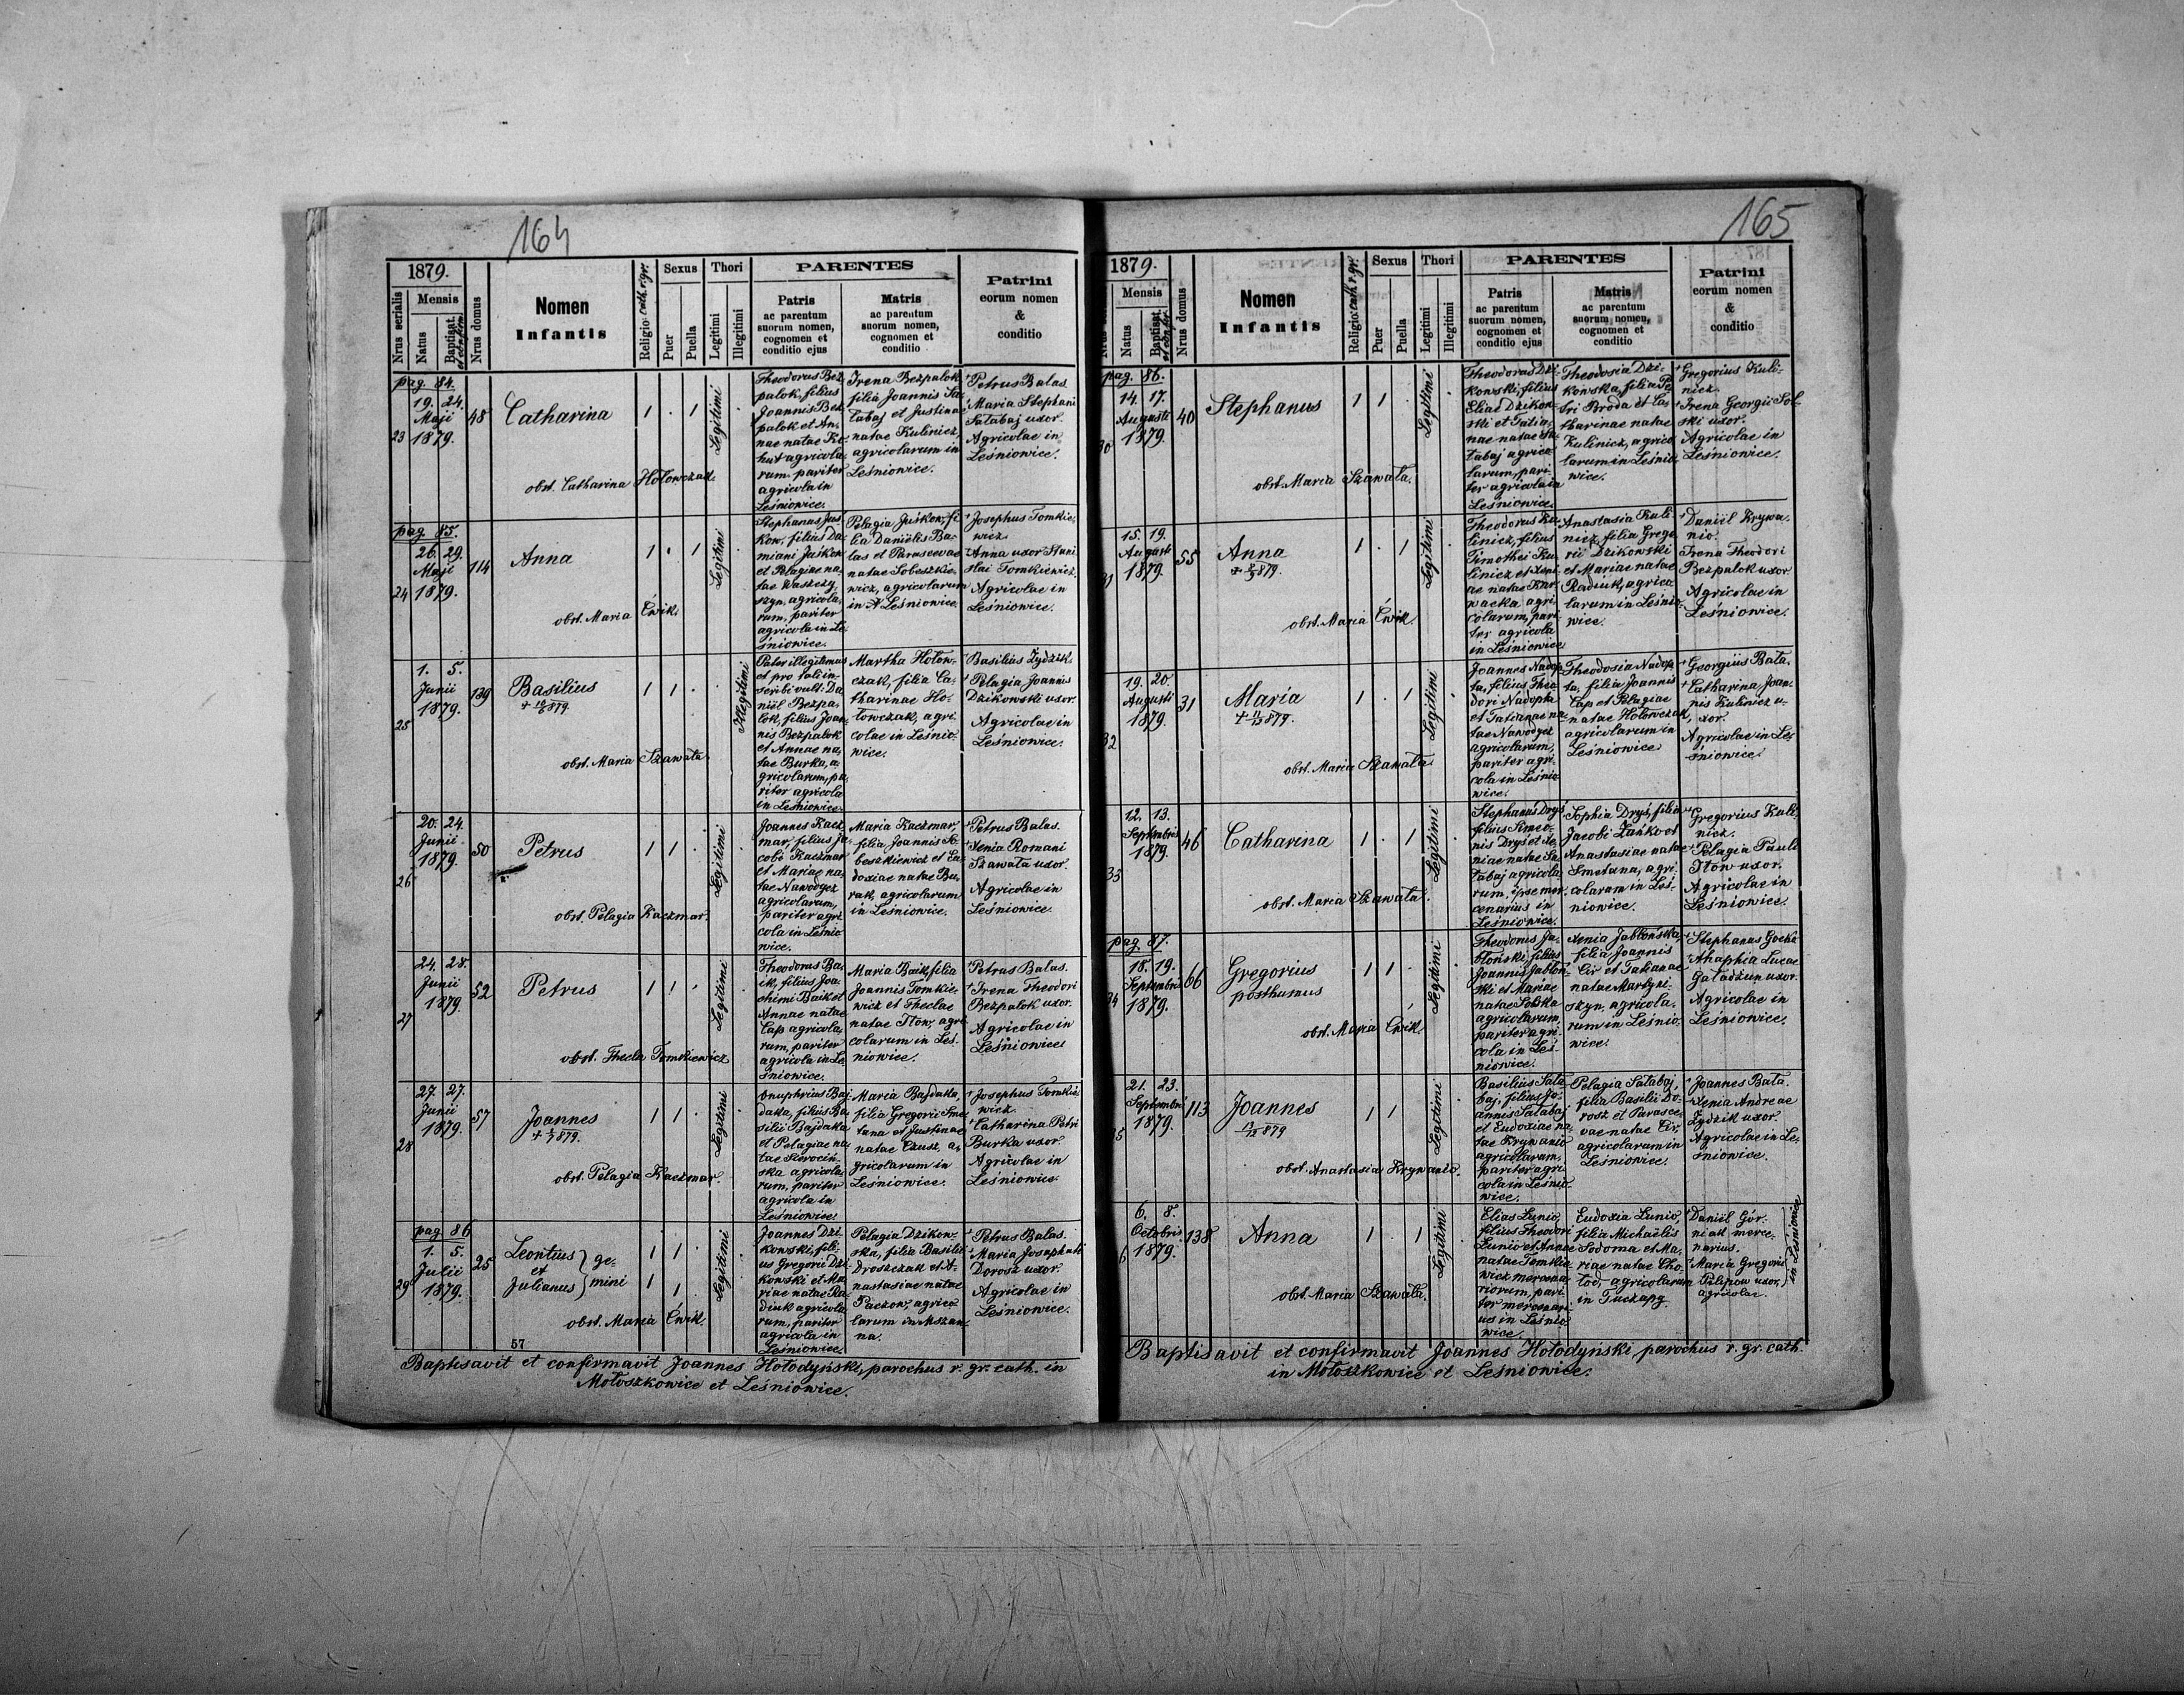 164
1879.
Nrus serialis
Mensis
Natus
Baptisat. et confirm.
Nrus domus
Nomen
Infantis
Religio: cath. r. gr.
Sexus
Puer
Puella
Thori
Legitimi
Illegitimi
PARENTES
Patris
ac parentum
suorum nomen,
cognomen et
conditio ejus
Matris
ac parentum
suorum nomen,
cognomen et
conditio
Patrini
eorum nomen
&
conditio
pag. 84.
23
19. 24.
Maji
1879.
48
Catharina
1 . 1
Legitimi
obst. Catharina Hołowczak.
Theodorus Bez
palok, filius
Joannis Bez
palok et An,
nae natae Ko
hut agricola,
rum, pariter
agricola in
Leśniowice.
Irena Bezpalok,
filia Joannis Sa
łabaj et Justinae
natae Kulinicz,
agricolarum in
Leśniowice.
+Petrus Balas.
+Maria Stephani
Sałabaj uxor.
Agricolae in
Leśniowice.
pag. 85.
24
26. 29.
Maji
1879.
114
Anna
1 . 1
Legitimi
obst. Maria Ćwik.
Stephanus Juś
kow, filius Da
miani Juśkow
et Pelagiae na,
tae Waszczy,
szyn, agricola,
rum, pariter
agricola in Le,
śniowice.
Pelagia Juśkow, fi
lia Daniëlis Ba,
las et Parascevae
natae Sobeszkie,
wicz, agricolarum
in Leśniowice.
+Josephus Tomkie,
wicz.
+Anna uxor Stani
slai Tomkiewicz.
Agricolae in
Leśniowice.
25
1. 5.
Junii
1879.
139
Basilius
+ 10/6 879
1 1 .
Illegitimi
obst. Maria Szawała.
Pater illegitimus
et pro tali in,
scribi vult: Da
niël Bezpa,
lok, filius Joan,
nis Bezpalok
et Annae na,
tae Burka, a,
gricolarum, pa,
riter agricola
in Leśniowice.
Martha Hołow,
czak, filia Ca,
tharinae Ho,
łowczak, agri
colae in Leśnio,
wice.
+Basilius Zydzik.
+Pelagia Joannis
Dzikowski uxor.
Agricolae in
Leśniowice.
26
20. 24.
Junii
1879.
50
Petrus
1 1 .
Legitimi
obst. Pelagia Kaczmar.
Joannes Kacz
mar, filius Ja
cobi Kaczmar
et Mariae na,
tae Nawodgez
agricolarum,
pariter agri
cola in Leśnio
wice.
Maria Kaczmar,
filia Joannis So
beszkiewicz et Eu
doxiae natae Bu,
rak, agricolarum
in Leśniowice.
+Petrus Balas.
+Xenia Romani
Szawała uxor.
Agricolae in
Leśniowice.
27
24. 28.
Junii
1879.
52
Petrus
1 1 .
Legitimi
obst. Thecla Tomkiewicz.
Theodorus Ba,
ik, filius Joa,
chimi Baik et
Annae natae
Cap agricola,
rum, pariter
agricola in Le,
śniowice.
Maria Baik, filia
Joannis Tomkie,
wicz et Theclae
natae Iłow, agri
colarum in Leś,
niowice.
+Petrus Balas.
+Irena Theodori
Bezpalok uxor.
Agricolae in
Leśniowice.
28
27. 27.
Junii
1879.
57
Joannes
1 1 .
Legitimi
obst. Pelagia Kaczmar.
Onuphrius Baj
daka, filius Ba
silii Bajdaka
et Pelagiae na
tae
agricola
rum, pariter
agricola in
Leśniowice.
Maria Bajdaka,
filia Gregorii Sme
tana et Justinae
natae Czusz, a,
gricolarum in
Leśniowice.
+Josephus Tomkie
wicz.
+Catharina Petri
Burka uxor.
Agricolae in
Leśniowice.
pag. 86
29
1. 5.
Julii
1879.
25
Leontius
et
Julianus
ge,
mini
1 1 .
1 1 .
Legitimi
obst. Maria Ćwik.
Joannes Dzi
kowski, fili,
us Gregorii Dzi
kowski et Ma
riae natae Ra
diuk agricola
rum, pariter
agricola in
Leśniowice.
Pelagia Dzikow,
ska, filia Basilii
Droszczak et A,
nastasiae natae
Paczow, agrico
larum in Mszan
na.
+Petrus Balas.
+Maria Josaphati
Dorosz uxor.
Agricolae in
Leśniowice.
57
Baptisavit et confirmavit Joannes Hołodyński, parochus r. gr. cath. in
Mołoszkowice et Leśniowice.
165
1879.
Nrus serialis
Mensis
Natus
Baptisat. et confir.
Nrus domus
Nomen
Infantis
Religio: cath. r. gr.
Sexus
Puer
Puella
Thori
Legitimi
Illegitimi
PARENTES
Patris
ac parentum
suorum nomen,
cognomen et
conditio ejus
Matris
ac parentum
suorum nomen,
cognomen et
conditio
Patrini
eorum nomen
&
conditio
pag. 86.
30
14. 17.
Augusti
1879.
40
Stephanus
1 1 .
Legitimi
obst. Maria Szawała.
Theodorus Dzi
kowski, filius
Eliae Dzikow
ski et Tatia,
nae natae Sa
łabaj agrico
larum, pari
ter agricola in
Leśniowice.
Theodosia Dzi,
kowska, filia Pe
tri Broda et Ca,
tharinae natae
Kulinicz, agrico
larum in Leśnio
wice.
+Gregorius Kuli,
nicz.
+Irena Georgii Sol
ski uxor.
Agricolae in
Leśniowice.
31
15. 19.
Augusti
1879.
55
Anna
1 . 1
Legitimi
obst. Maria Ćwik.
Theodorus Ku
linicz, filius
Timothei Ku
linicz et
ae natae
agri
colarum, pari
ter agricola
in Leśniowice.
Anastasia Kuli
nicz, filia Grego
rii Dzikowski
et Mariae natae
Radiuk, agrico
larum in Leśnio,
wice.
+Daniil Krywa,
nio.
Irena Theodori
Bezpalok uxor.
Agricolae in
Leśniowice.
32
19. 20.
Augusti
1879.
31
Maria
1 . 1
Legitimi
obst. Maria Szawała.
Joannes Nadop
ta, filius Theo
dori Nadopta
et Tatianae na
tae Nawodgez
agricolarum,
pariter agri,
cola in Leśnio
wice.
Theodosia Nadop
ta, filia Joannis
Cap et Pelagiae
natae Hołowczak,
agricolarum in
Leśniowice.
+Georgiis Bata.
+Catharina Joan,
nis Kulinicz u,
xor.
Agricolae in Le,
śniowice.
33
12. 13.
Septembris
1879.
46
Catharina
1 . 1
Legitimi
obst. Maria Szawała.
Stephanus Dryś
filius Simeo,
nis Dryś et Xe,
niae natae Sa
łabaj agricola,
rum, ipse mer,
cenarius in
Leśniowice.
Sophia Dryś, filia
Jacobi Zańko et
Anastasiae natae
Smetana, agri,
colarum in Leś,
niowice.
+Gregorius Kuli,
nicz.
+Pelagia Pauli
Iłow uxor.
Agricolae in
Leśniowice.
pag. 87.
34
18. 19.
Septembris
1879.
66
Gregorius
posthumus
1 1 .
Legitimi
obst. Maria Ćwik.
Theodorus Ja,
błoński, filius
Joannis Jabłoń
ski et Mariae
natae Sobka
agricolarum,
pariter agri
cola in Leś,
niowice.
Xenia Jabłońska,
filia Joannis
Cir et Tatianae
natae Martyni,
szyn, agricola,
rum in Leśnio,
wice.
+Stephanus Gocka
+Ahaphia Lucae
Gaładżun uxor.
Agricolae in
Leśniowice.
35
21. 23.
Septembris
1879.
113
Joannes
1 1 .
Legitimi
obst. Anastasia Krywania.
Basilius Sała
baj, filius Jo,
annis Sałabaj
et Eudoxiae na,
tae Krywanio
agricolarum,
pariter agri
cola in Leśnio
wice.
Pelagia Sałabaj,
filia Basilii Do,
rosz et Parasce,
vae natae Cir,
agricolarum in
Leśniowice.
+Joannes Bata.
+Xenia Andreae
Zydzik uxor.
Agricolae in Le,
śniowice.
6
6. 8.
Octobris
1879.
138
Anna
1 . 1
Legitimi
obst. Maria Szawała.
Elias Lunio,
filius Theodori
Lunio et Annae
natae Tomkie
wicz mercena
riorum, pari
ter mercenari
us in Leśnio
wice.
Eudoxia Lunio,
filia Michaëlis
Sodoma et Ma,
riae natae Cho,
tod, agricolarum
in Tuczapy.
+Daniil Gór,
niak merce,
narius.
+Maria Gregorii
Pilipow uxor,
agricolae.
in Leśniowice
Baptisavit et confirmavit Joannes Hołodyński, parochus r. gr. cath.
in Mołoszkowice et Leśniowice.